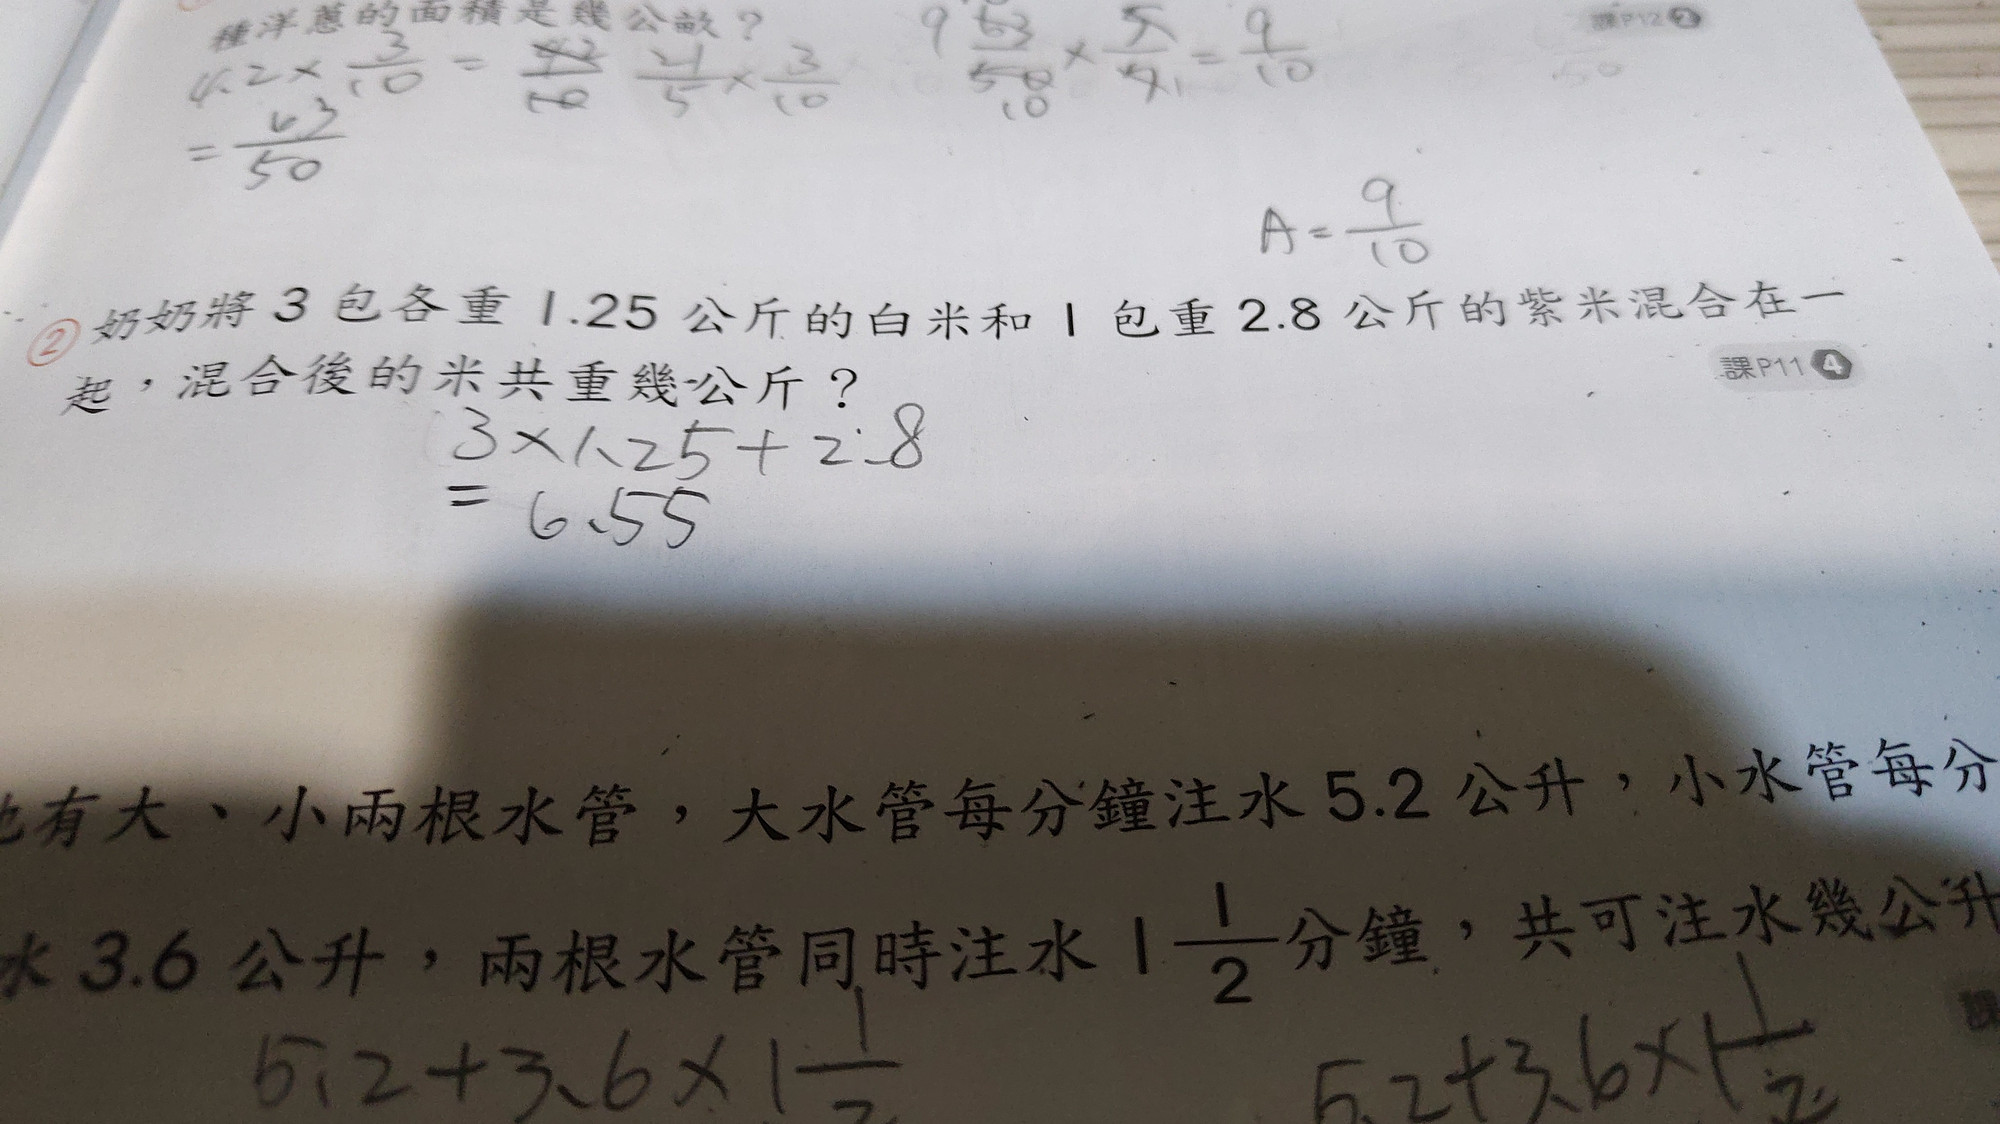 種洋蔥的面積是幾公畝？ 課P12 2
4.2 × 3/10 = 42/10 21/5 × 3/10
9 63/50 10 × 5/7 1 = 9/10
= 63/50
A = 9/10
② 奶奶將 3 包各重 1.25 公斤的白米和 1 包重 2.8 公斤的紫米混合在一
起，混合後的米共重幾公斤？ 課P11 4
3×1.25+2.8
= 6.55
有大、小兩根水管，大水管每分鐘注水 5.2 公升，小水管每分
水 3.6 公升，兩根水管同時注水 1 1/2 分鐘，共可注水幾公升
5.2+3.6×1 1/2 5.2+3.6×1 1/2